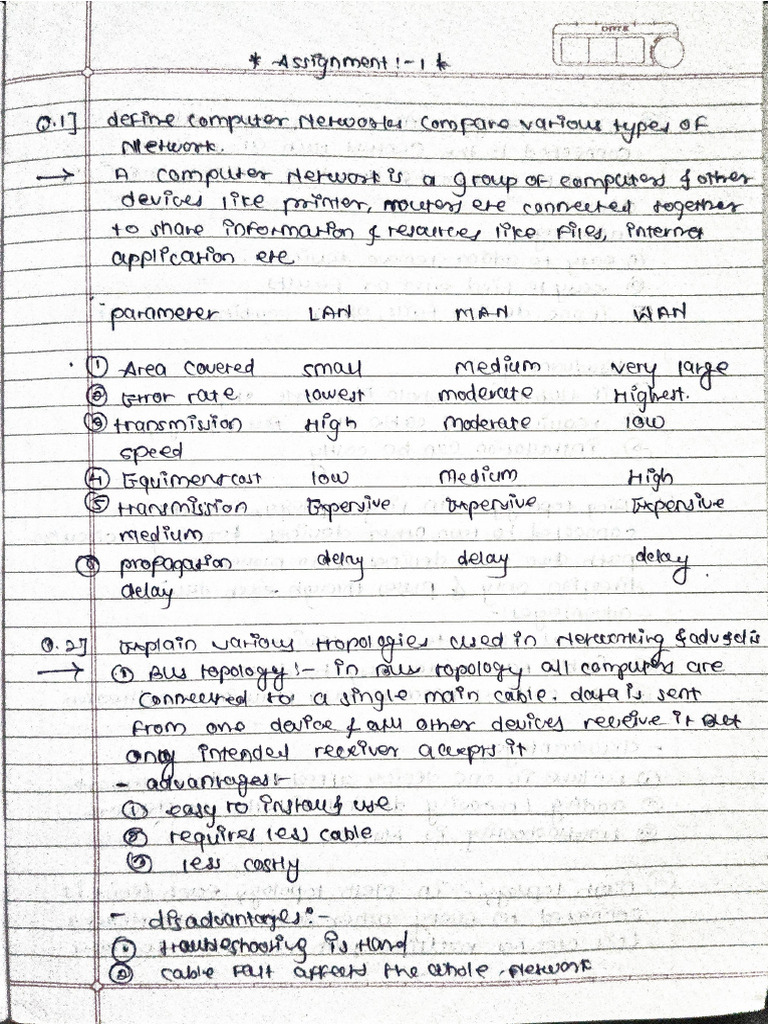 DATE
* Assignment :- 1 *
Q.1] define computer Networks compare various types of
Network.
→ A computer Network is a group of computers & other
devices like printer, routers etc connected together
to share information & resources like files, internet
application etc
parameter LAN MAN WAN
① Area covered small medium very large
② Error rate lowest moderate Highest.
③ transmission High moderate low
speed
④ Equimenscost low medium High
⑤ transmission Expensive Expensive Expensive
medium
⑥ propagation delay delay delay
delay
Q.2] Explain various tropologies used in Networking & adv & dis
→ ① Bus topology :- in Bus topology all computers are
connected to a single main cable. data is sent
from one device & all other devices receive it but
only intended receiver accepts it
- advantages :-
① easy to install & use
② requires less cable
③ less costly
- disadvantages :-
① troubleshooting is Hard
② cable falt affects the whole Network